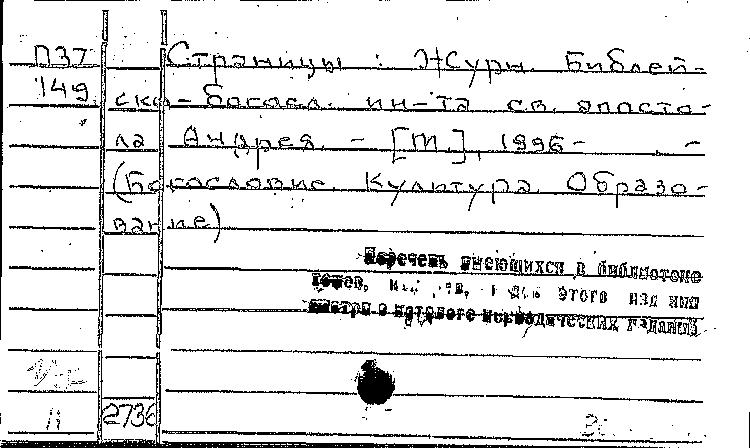 П37 Страницы : Журн. Библей-
149 ско-богосл. ин-та св. апосто-
ла Андрея. - [М.], 1996- . -
(Богословие. Культура. Образо-
вание)
Перечень имеющихся в библиотеке
томов, этого изд ния
смотри в каталоге периодических изданий
2736